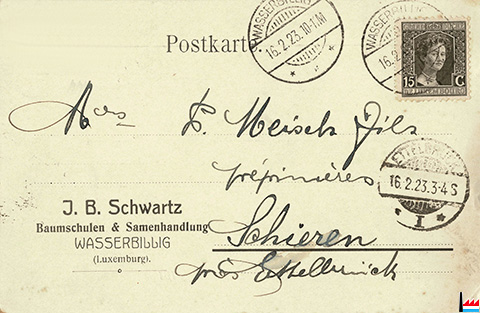 Postkarte.
WASSERBILLIG
16.2.23.10-11M
WASSERBILLIG
16.2
15 C
P. Meisch Fils
pépinières
J. B. Schwartz
Baumschulen & Samenhandlung
WASSERBILLIG
(Luxemburg).
Schieren
près Ettelbruck
16.2.23.3-4S
I